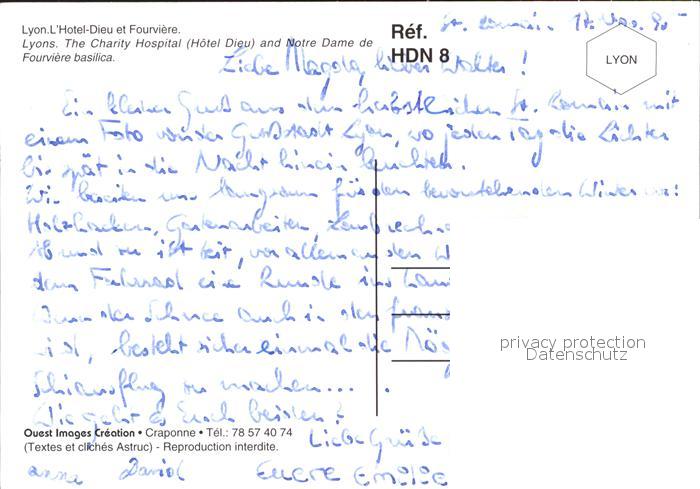 Lyon.L'Hotel-Dieu et Fourvière.
Lyons. The Charity Hospital (Hôtel Dieu) and Notre Dame de
Fourvière basilica.
Réf.
HDN 8
St. Romain, 17. Nov. 95
LYON
Liebe Magda, lieber Walter!
Ein kleiner Gruß aus dem herbstlichen St. Romain mit
einem Foto von der Großstadt Lyon, wo jeden Tag die Lichter
bis spät in die Nacht hinein leuchten.
Wir bereiten uns langsam für den bevorstehenden Winter vor:
Holzhacken, Gartenarbeiten, Laub
Ab und zu ist Zeit, vor allem an den W
dem Fahrrad eine Runde ins
Wenn der Schnee auch in den
ist, besteht sicher einmal die Mög
Schiausflug zu machen... .
Wie geht es Euch beiden?
Liebe Grüße
Anna David Euere Emoïse
Ouest Images Création • Craponne • Tél.: 78 57 40 74
(Textes et clichés Astruc) - Reproduction interdite.
privacy protection
Datenschutz